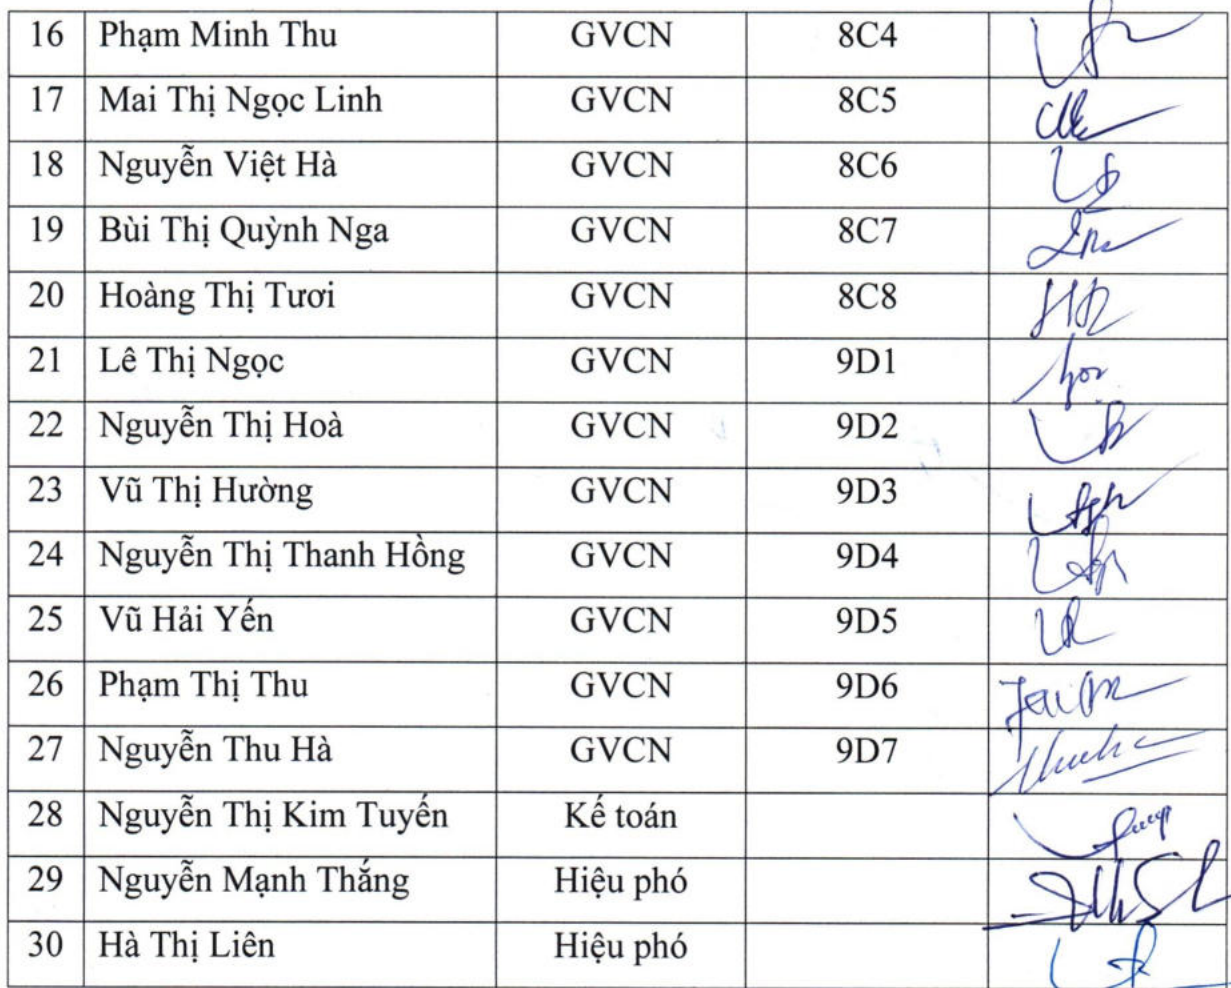 16 Phạm Minh Thu GVCN 8C4
17 Mai Thị Ngọc Linh GVCN 8C5
18 Nguyễn Việt Hà GVCN 8C6
19 Bùi Thị Quỳnh Nga GVCN 8C7
20 Hoàng Thị Tươi GVCN 8C8
21 Lê Thị Ngọc GVCN 9D1
22 Nguyễn Thị Hoà GVCN 9D2
23 Vũ Thị Hường GVCN 9D3
24 Nguyễn Thị Thanh Hồng GVCN 9D4
25 Vũ Hải Yến GVCN 9D5
26 Phạm Thị Thu GVCN 9D6
27 Nguyễn Thu Hà GVCN 9D7
28 Nguyễn Thị Kim Tuyến Kế toán
29 Nguyễn Mạnh Thắng Hiệu phó
30 Hà Thị Liên Hiệu phó